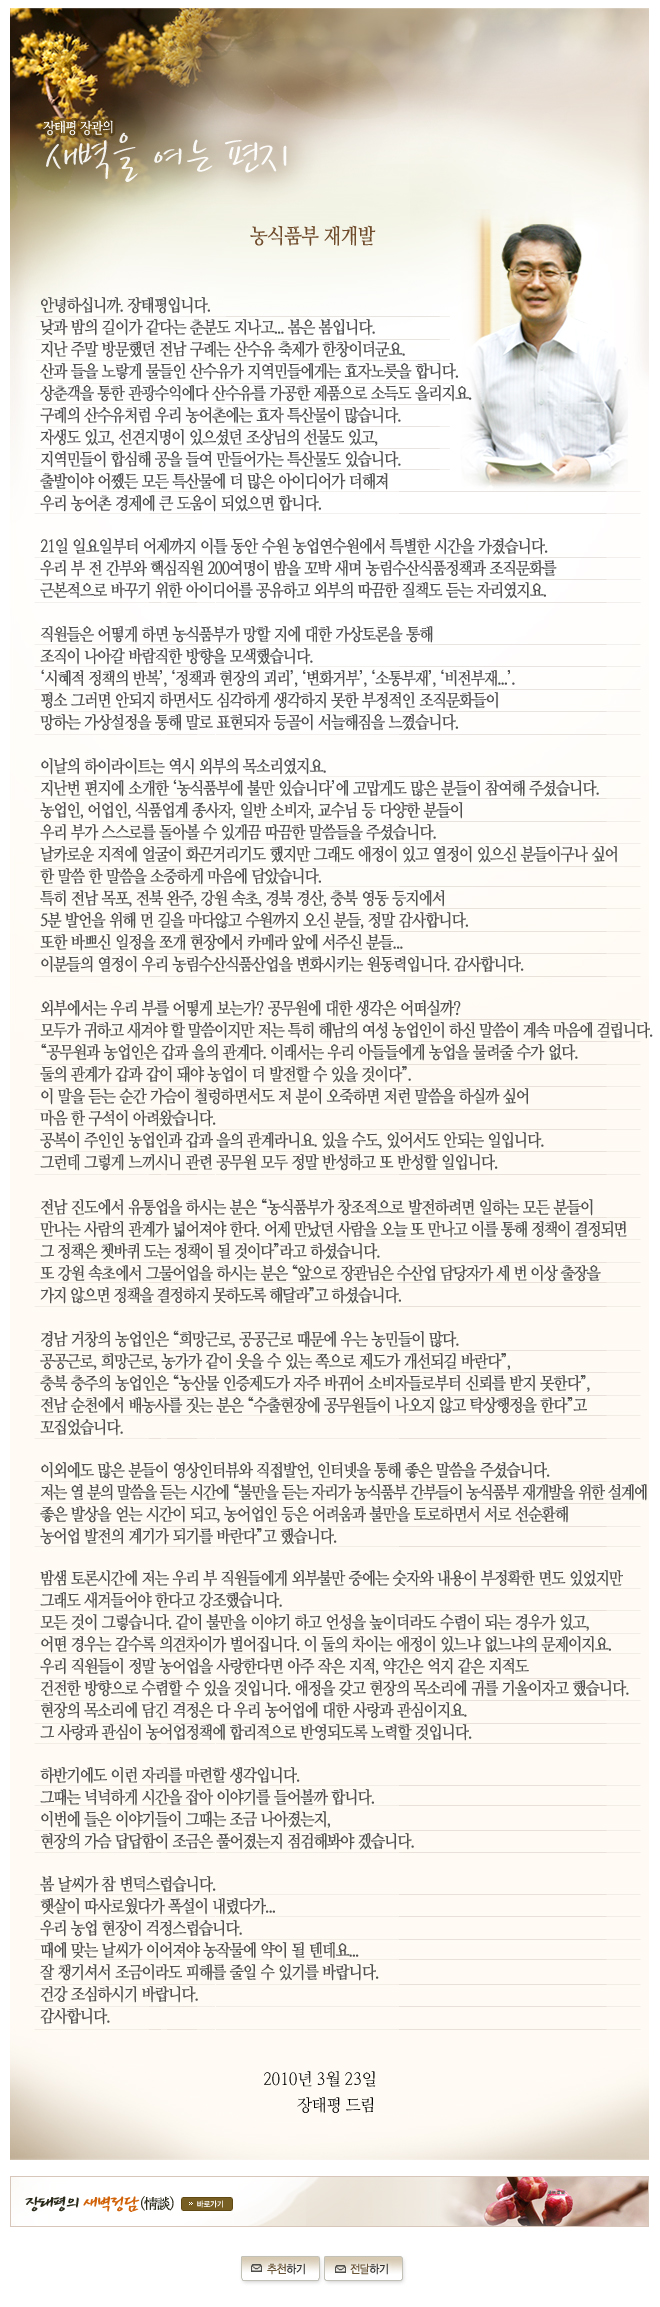 장태평 장관의
새벽을 여는 편지
농식품부 재개발
안녕하십니까. 장태평입니다.
낮과 밤의 길이가 같다는 춘분도 지나고... 봄은 봄입니다.
지난 주말 방문했던 전남 구례는 산수유 축제가 한창이더군요.
산과 들을 노랗게 물들인 산수유가 지역민들에게는 효자노릇을 합니다.
상춘객을 통한 관광수익에다 산수유를 가공한 제품으로 소득도 올리지요.
구례의 산수유처럼 우리 농어촌에는 효자 특산물이 많습니다.
자생도 있고, 선견지명이 있으셨던 조상님의 선물도 있고,
지역민들이 합심해 공을 들여 만들어가는 특산물도 있습니다.
출발이야 어쨌든 모든 특산물에 더 많은 아이디어가 더해져
우리 농어촌 경제에 큰 도움이 되었으면 합니다.
21일 일요일부터 어제까지 이틀 동안 수원 농업연수원에서 특별한 시간을 가졌습니다.
우리 부 전 간부와 핵심직원 200여명이 밤을 꼬박 새며 농림수산식품정책과 조직문화를
근본적으로 바꾸기 위한 아이디어를 공유하고 외부의 따끔한 질책도 듣는 자리였지요.
직원들은 어떻게 하면 농식품부가 망할 지에 대한 가상토론을 통해
조직이 나아갈 바람직한 방향을 모색했습니다.
‘시혜적 정책의 반복’, ‘정책과 현장의 괴리’, ‘변화거부’, ‘소통부재’, ‘비전부재...’.
평소 그러면 안되지 하면서도 심각하게 생각하지 못한 부정적인 조직문화들이
망하는 가상설정을 통해 말로 표현되자 등골이 서늘해짐을 느꼈습니다.
이날의 하이라이트는 역시 외부의 목소리였지요.
지난번 편지에 소개한 ‘농식품부에 불만 있습니다’에 고맙게도 많은 분들이 참여해 주셨습니다.
농업인, 어업인, 식품업계 종사자, 일반 소비자, 교수님 등 다양한 분들이
우리 부가 스스로를 돌아볼 수 있게끔 따끔한 말씀들을 주셨습니다.
날카로운 지적에 얼굴이 화끈거리기도 했지만 그래도 애정이 있고 열정이 있으신 분들이구나 싶어
한 말씀 한 말씀을 소중하게 마음에 담았습니다.
특히 전남 목포, 전북 완주, 강원 속초, 경북 경산, 충북 영동 등지에서
5분 발언을 위해 먼 길을 마다않고 수원까지 오신 분들, 정말 감사합니다.
또한 바쁘신 일정을 쪼개 현장에서 카메라 앞에 서주신 분들...
이분들의 열정이 우리 농림수산식품산업을 변화시키는 원동력입니다. 감사합니다.
외부에서는 우리 부를 어떻게 보는가? 공무원에 대한 생각은 어떠실까?
모두가 귀하고 새겨야 할 말씀이지만 저는 특히 해남의 여성 농업인이 하신 말씀이 계속 마음에 걸립니다.
“공무원과 농업인은 갑과 을의 관계다. 이래서는 우리 아들들에게 농업을 물려줄 수가 없다.
둘의 관계가 갑과 갑이 돼야 농업이 더 발전할 수 있을 것이다”.
이 말을 듣는 순간 가슴이 철렁하면서도 저 분이 오죽하면 저런 말씀을 하실까 싶어
마음 한 구석이 아려왔습니다.
공복이 주인인 농업인과 갑과 을의 관계라니요. 있을 수도, 있어서도 안되는 일입니다.
그런데 그렇게 느끼시니 관련 공무원 모두 정말 반성하고 또 반성할 일입니다.
전남 진도에서 유통업을 하시는 분은 “농식품부가 창조적으로 발전하려면 일하는 모든 분들이
만나는 사람의 관계가 넓어져야 한다. 어제 만났던 사람을 오늘 또 만나고 이를 통해 정책이 결정되면
그 정책은 쳇바퀴 도는 정책이 될 것이다”라고 하셨습니다.
또 강원 속초에서 그물어업을 하시는 분은 “앞으로 장관님은 수산업 담당자가 세 번 이상 출장을
가지 않으면 정책을 결정하지 못하도록 해달라”고 하셨습니다.
경남 거창의 농업인은 “희망근로, 공공근로 때문에 우는 농민들이 많다.
공공근로, 희망근로, 농가가 같이 웃을 수 있는 쪽으로 제도가 개선되길 바란다”,
충북 충주의 농업인은 “농산물 인증제도가 자주 바뀌어 소비자들로부터 신뢰를 받지 못한다”,
전남 순천에서 배농사를 짓는 분은 “수출현장에 공무원들이 나오지 않고 탁상행정을 한다”고
꼬집었습니다.
이외에도 많은 분들이 영상인터뷰와 직접발언, 인터넷을 통해 좋은 말씀을 주셨습니다.
저는 열 분의 말씀을 듣는 시간에 “불만을 듣는 자리가 농식품부 간부들이 농식품부 재개발을 위한 설계에
좋은 발상을 얻는 시간이 되고, 농어업인 등은 어려움과 불만을 토로하면서 서로 선순환해
농어업 발전의 계기가 되기를 바란다”고 했습니다.
밤샘 토론시간에 저는 우리 부 직원들에게 외부불만 중에는 숫자와 내용이 부정확한 면도 있었지만
그래도 새겨들어야 한다고 강조했습니다.
모든 것이 그렇습니다. 같이 불만을 이야기 하고 언성을 높이더라도 수렴이 되는 경우가 있고,
어떤 경우는 갈수록 의견차이가 벌어집니다. 이 둘의 차이는 애정이 있느냐 없느냐의 문제이지요.
우리 직원들이 정말 농어업을 사랑한다면 아주 작은 지적, 약간은 억지 같은 지적도
건전한 방향으로 수렴할 수 있을 것입니다. 애정을 갖고 현장의 목소리에 귀를 기울이자고 했습니다.
현장의 목소리에 담긴 걱정은 다 우리 농어업에 대한 사랑과 관심이지요.
그 사랑과 관심이 농어업정책에 합리적으로 반영되도록 노력할 것입니다.
하반기에도 이런 자리를 마련할 생각입니다.
그때는 넉넉하게 시간을 잡아 이야기를 들어볼까 합니다.
이번에 들은 이야기들이 그때는 조금 나아졌는지,
현장의 가슴 답답함이 조금은 풀어졌는지 점검해봐야 겠습니다.
봄 날씨가 참 변덕스럽습니다.
햇살이 따사로웠다가 폭설이 내렸다가...
우리 농업 현장이 걱정스럽습니다.
때에 맞는 날씨가 이어져야 농작물에 약이 될 텐데요...
잘 챙기셔서 조금이라도 피해를 줄일 수 있기를 바랍니다.
건강 조심하시기 바랍니다.
감사합니다.
2010년 3월 23일
장태평 드림
장태평의 새벽정담(情談) » 바로가기
추천하기 전달하기